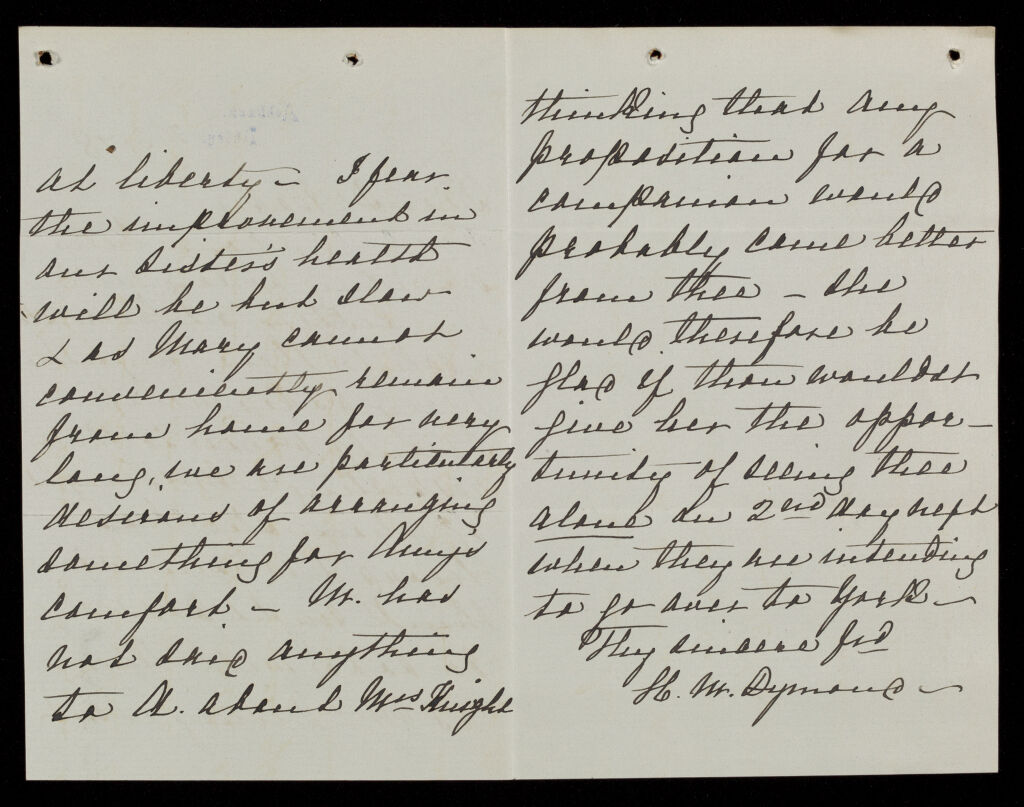 at liberty – I fear
the improvement in
our Sister's health
will be but slow
& as Mary cannot
conveniently remain
from home for very
long, we are particularly
desirous of arranging
something for Amy's
comfort – M. has
not said anything
to A. about Mrs Knight
thinking that any
proposition for a
companion would
probably come better
from thee – she
would therefore be
glad if thou wouldst
give her the oppor-
tunity of seeing thee
alone on 2nd day next
when they are intending
to go over to York –
Thy sincere frd
H. M. Dymond –